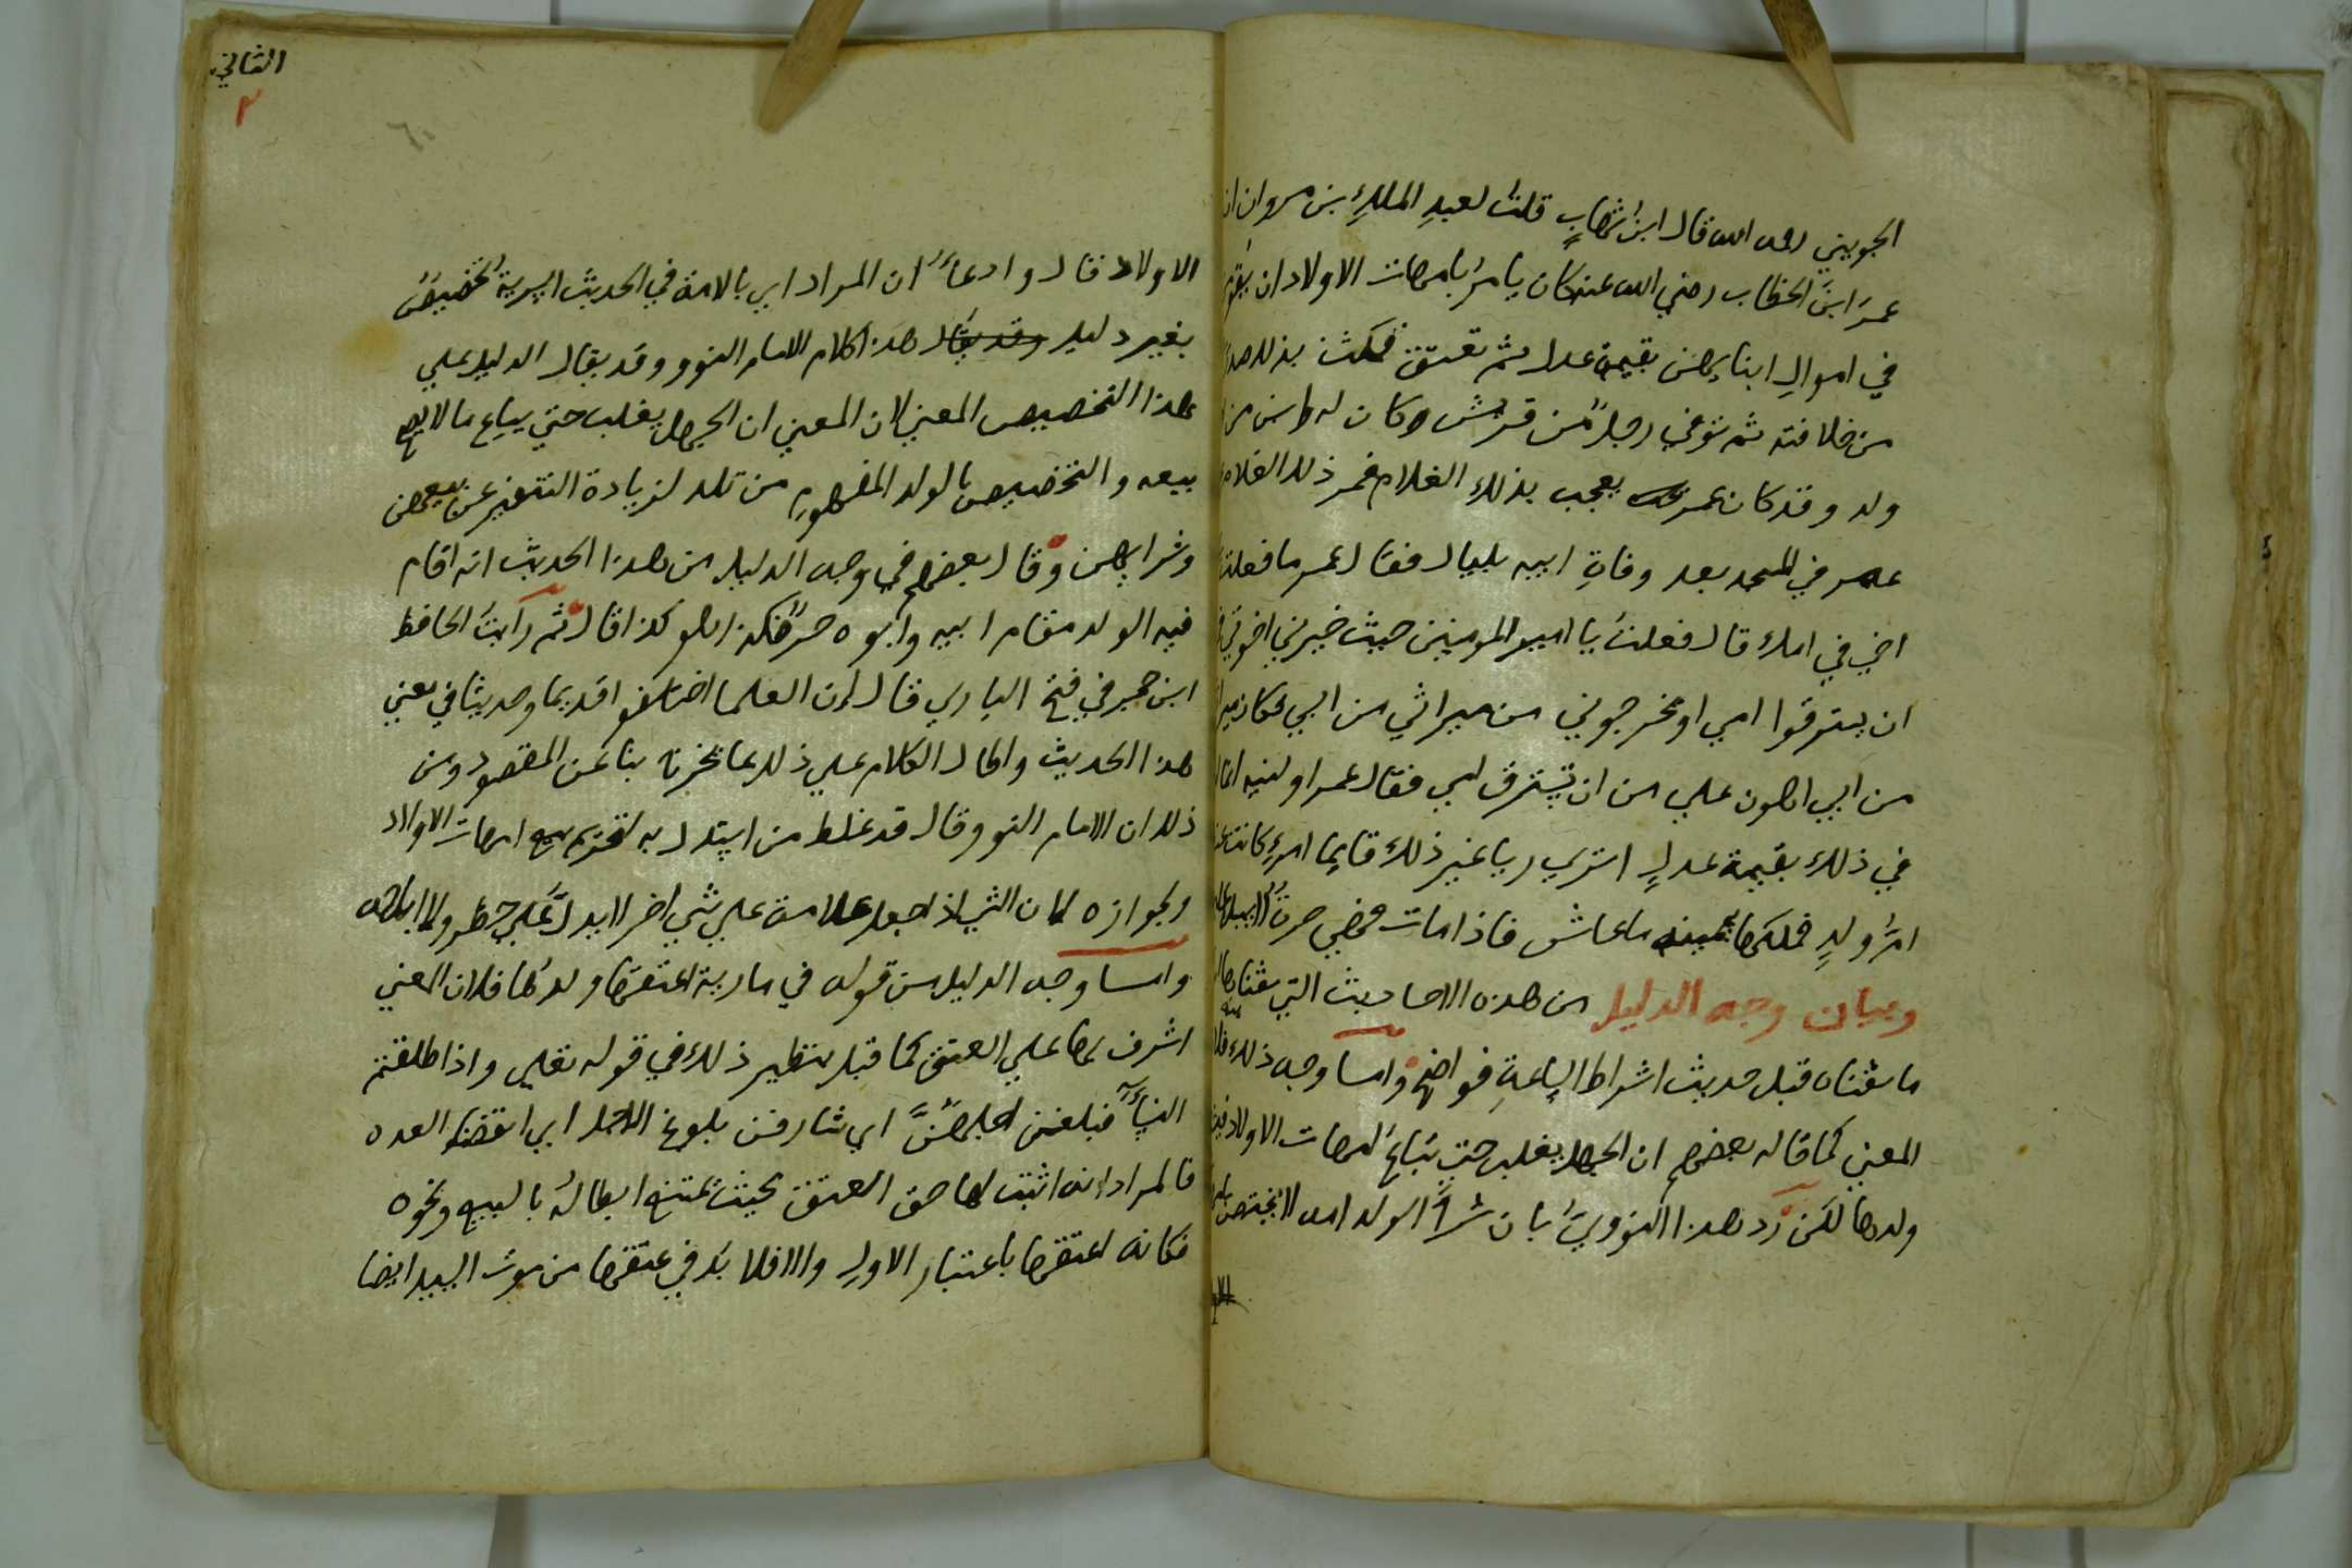 الجويني رحمه الله قال ابن شهابٍ قلت لعبدِ الملكِ بن مروان ان
عمر ابن الخطاب رضي الله عنه كان يامر بامهات الاولاد ان يقوّم
في اموالِ ابنايهن بقيمة عدل ثم تعتق فمكث بذلك صدرا
من خلافته ثم توفي رجل من قريش وكان له ابن من
ولد وقد كان عمر يعجب بذلك الغلام فمر ذلك الغلام
عمر في المسجد بعد وفاتِ ابيه بليال فقال عمر ما فعلت
اخي في امك قال فعلت يا امير المومنين حيث خيرني اخوتي
ان يسترقوا امي او يخرجوني من ميراثي من ابي فكان ميراثي
من ابي اهون علي من ان تسترق امي فقال عمر اولست انما
في ذلك بقيمة عدلٍ
امُّ ولدٍ فملكها ما عاش فاذا مات فهي حرة لا سبيل
وبيان وجه الدليل من هذه الاحاديث التي سقناها
ما سقناه قبل حديث اشراط الساعةِ فواضح واما وجه ذلك
المعني كما قاله بعضهم ان الجهل يغلب حتي تباع امهات الاولاد
ولدها لكن رد هذا النووي بان شرا الولد امه لا يختص
الثاني
٢
الاولاد قال وادعاء ان المراد اي بالامة في الحديث السرية تخصيص
بغير دليل وقد يقال هذا كلام الامام النوو وقد يقال الدليل علي
هذا التخصيص المعني لان المعني ان الجهل يغلب حتي يباع ما لا يصح
بيعه والتخصيص بالولد المفهوم من تلد لزيادة التنفير عن بيعهن
وشرايهن وقال بعضهم في وجه الدليل من هذا الحديث انه اقام
فيه الولد مقام ابيه وابوه حرٌّ فكذا هو كذا قال ثم رايت الحافظ
ابن حجر في فتح الباري قال ان العلما اختلفوا قديما وحديثا في معني
هذا الحديث واطال الكلام علي ذلك بما يخرجنا عن المقصود ومن
ذلك ان الامام النوو قال قد غلط من استدل به لتحريم بيع امهات الاولاد
ولجوازه لان الشي اذا جعل علامة علي شي اخر لا يدل علي حظر ولا اباحه
واما وجه الدليل من قوله في مارية اعتقها ولدها فلان المعني
اشرف بها علي العتق كما قيل بنظير ذلك في قوله تعلي واذا طلقتم
النسآء فبلغن اجلهنَّ اي شارفن بلوغ الاجل اي انقضا العده
فالمراد انه اثبت لها حق العتق بحيث يمتنع ابطاله بالبيع ونحوه
فكانه اعتقها باعتبار الاول والا فلا بد في عتقها من موت السيد ايضا